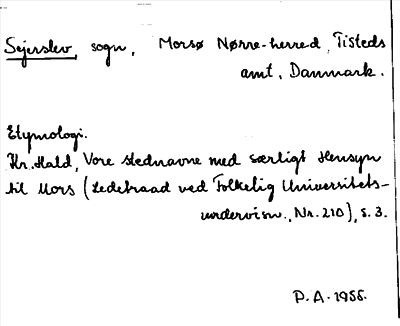 Sejerslev, sogn, Morsø Nørre-herred, Tisteds
amt, Danmark.
Etymologi.
Kr. Hald, Vore stednavne med særligt Hensyn
til Mors (Ledetraad ved Folkelig Universitets-
undervisn., Nr. 210), s. 3.
P.A. 1955.